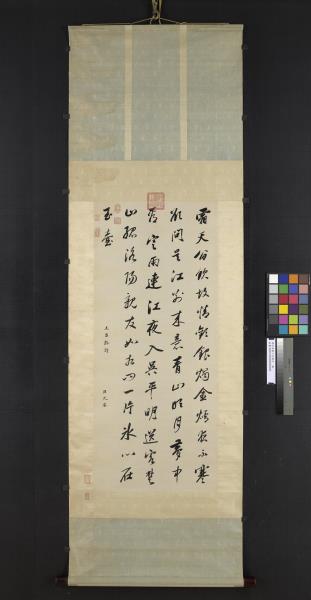 霜天留飲故情歡銀燭金爐夜不寒
欲問吳江別來意青山明月夢中
看寒雨連江夜入吳平明送客楚
山孤洛陽親友如相問一片冰心在
玉壺
王昌齡詩